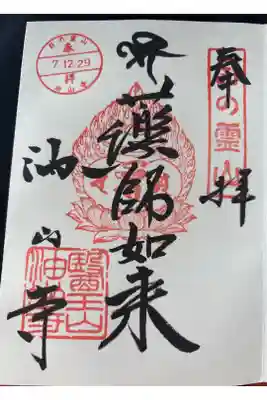 奉拝
の霊山
薬師如来
油山寺
7.12.29
醫王山
油山寺